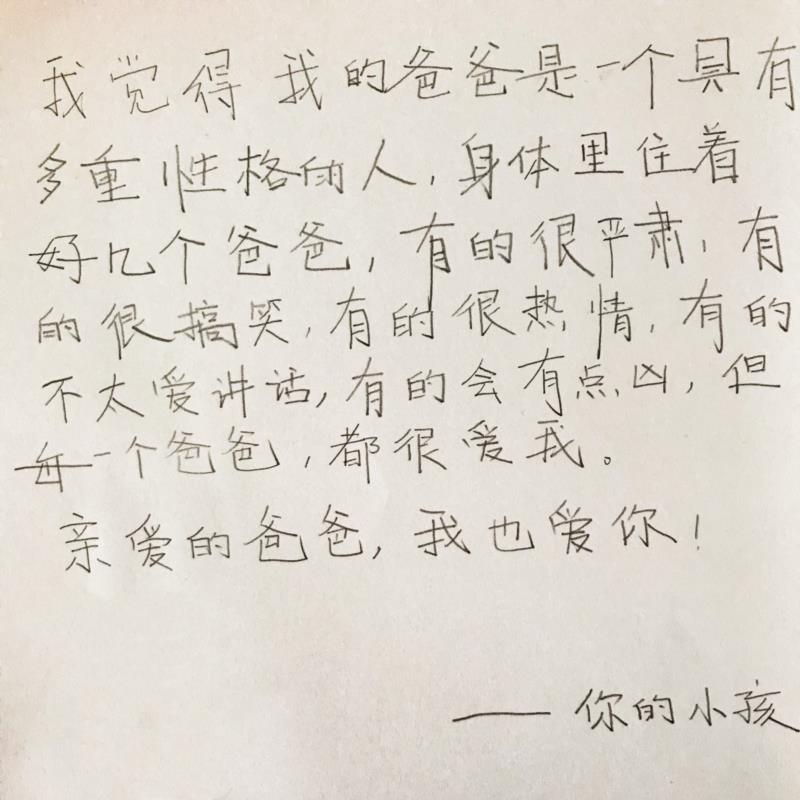 我觉得我的爸爸是一个具有
多重性格的人,身体里住着
好几个爸爸,有的很严肃,有
的很搞笑,有的很热情,有的
不太爱讲话,有的会有点凶,但
每一个爸爸,都很爱我。
亲爱的爸爸,我也爱你!
——你的小孩